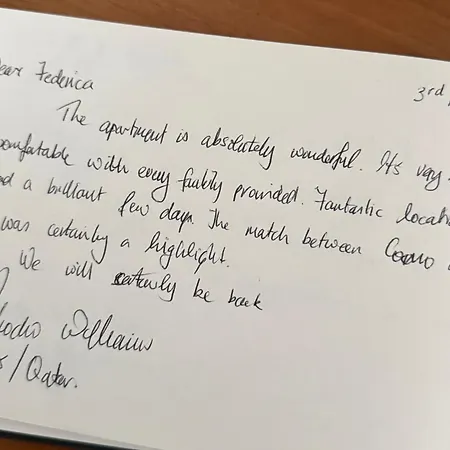 ear Federica
3rd
The apartment is absolutely wonderful. Its very
omfatable with every facility provided. Fantastic locatio
d a brilliant few days. The match between Como
was certainly a highlight.
We will certainly be back
Williams
/Qatar.